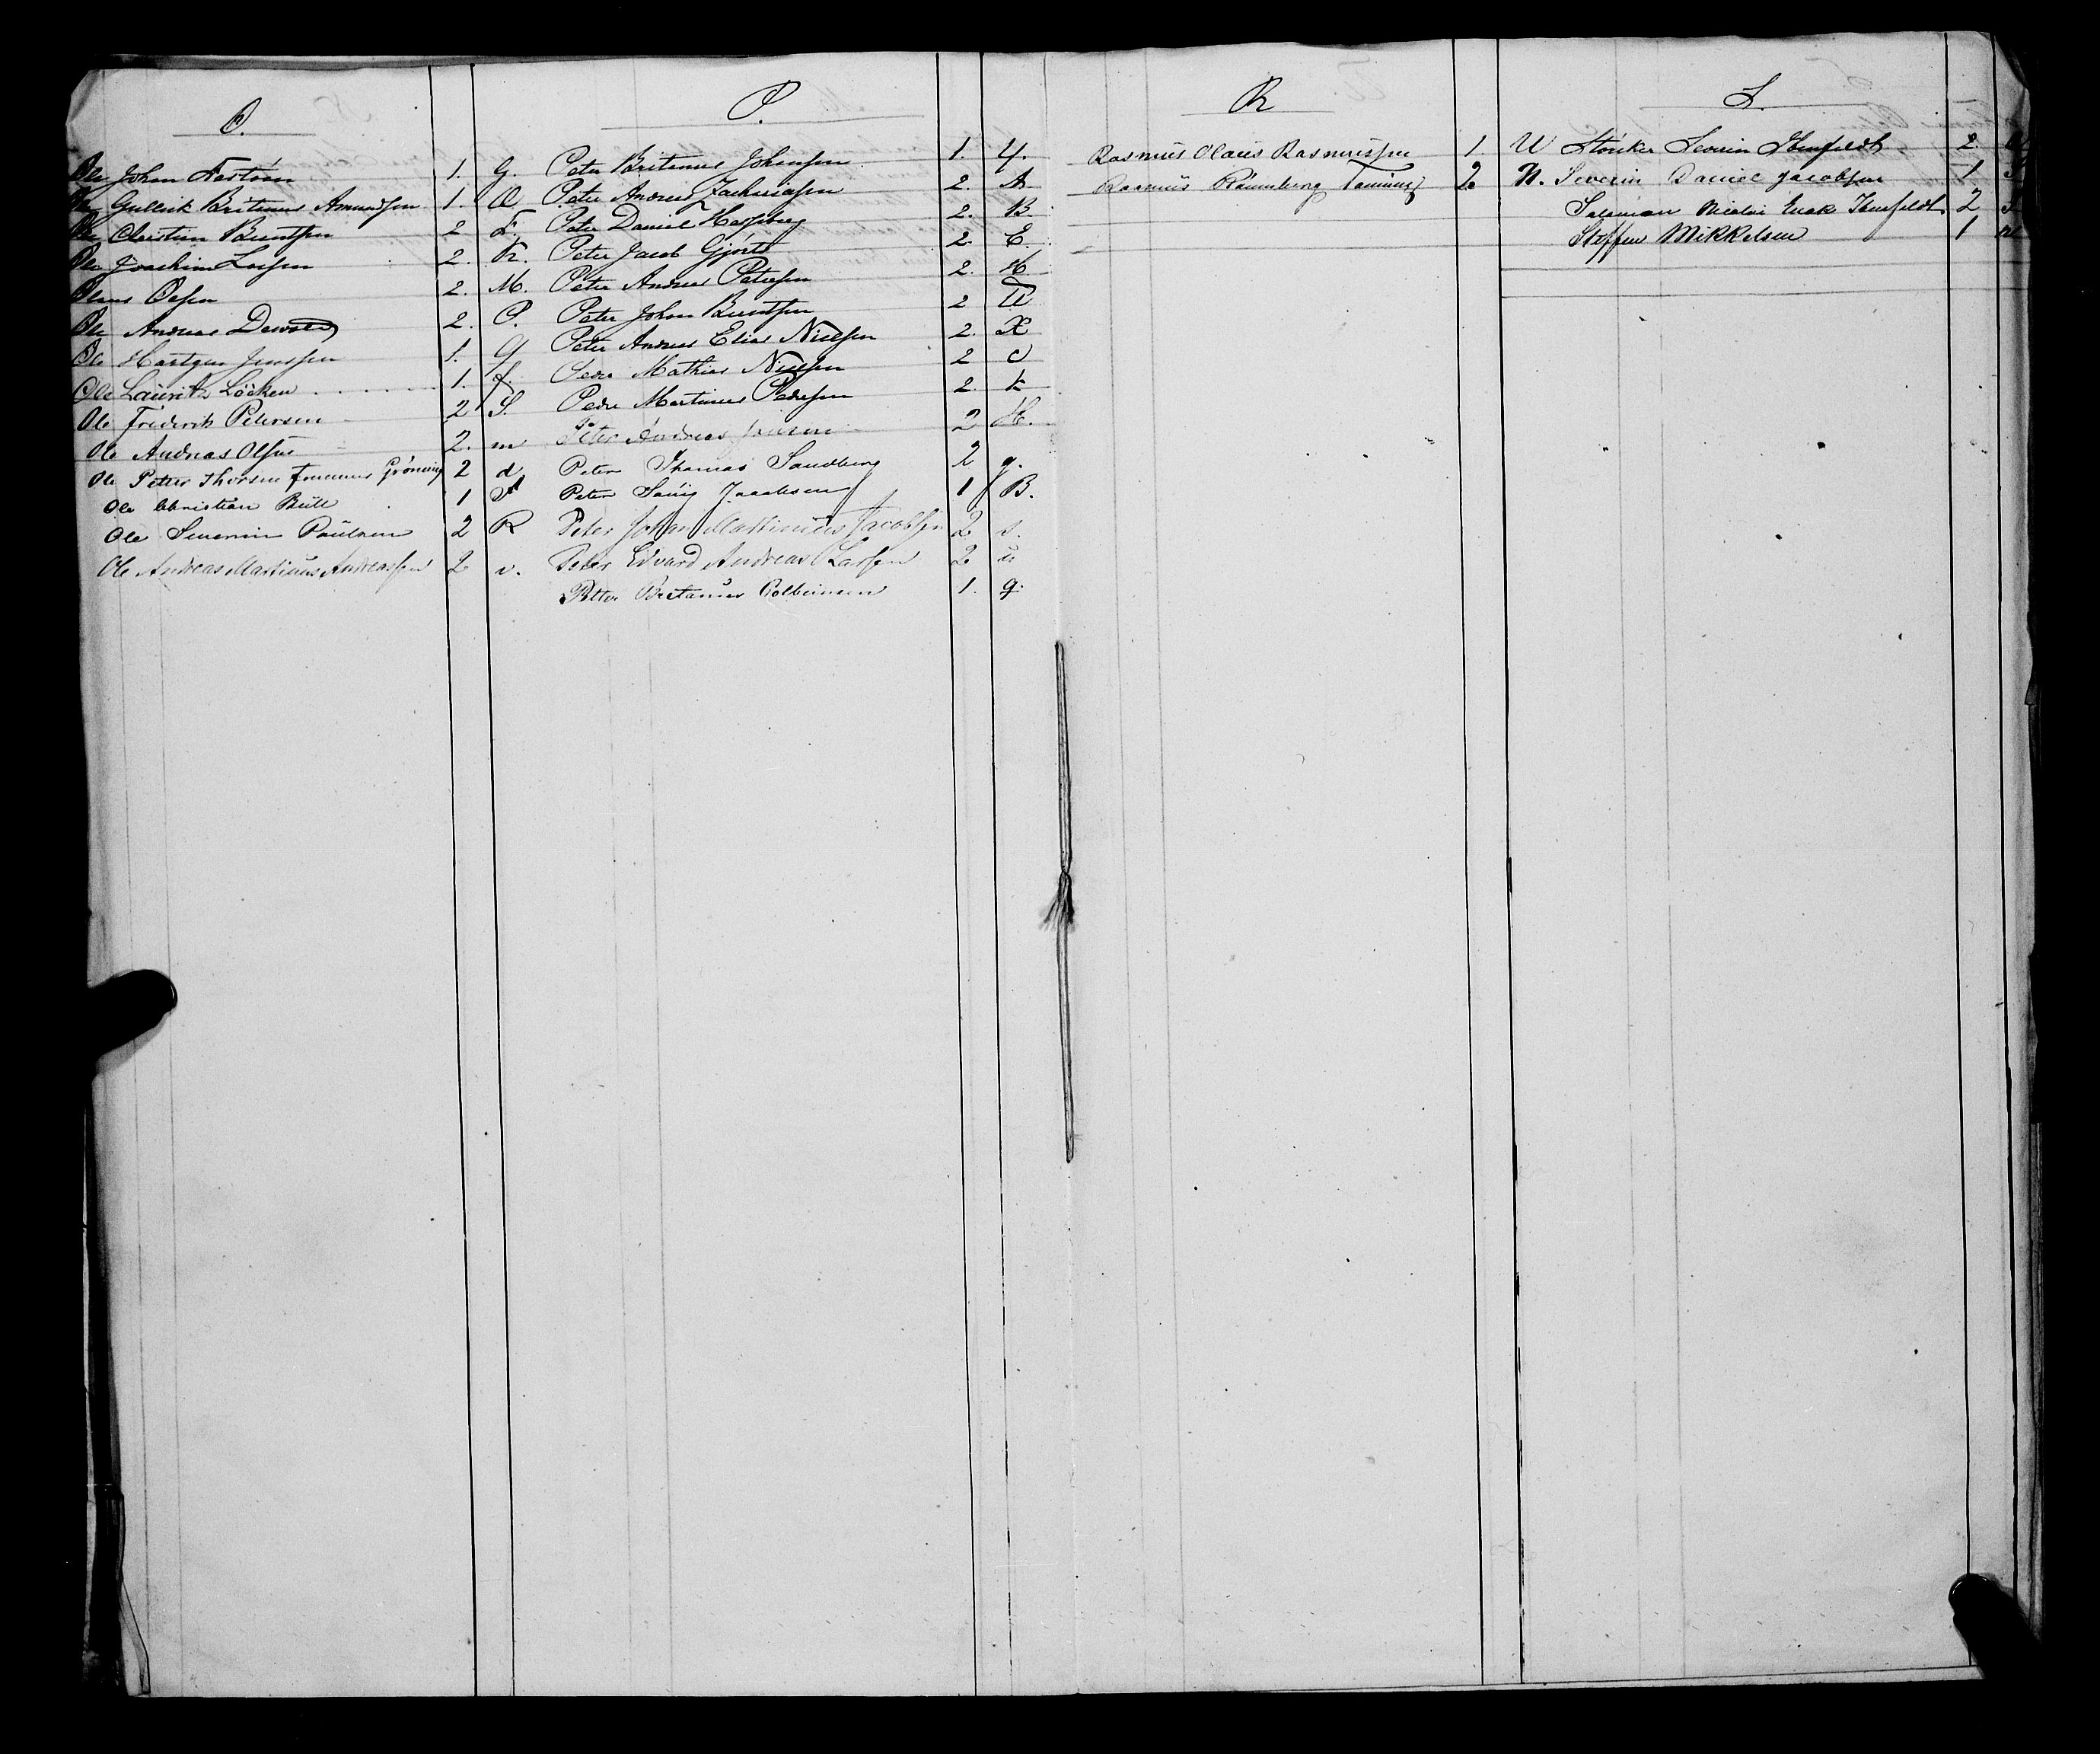 O.
Ole Johan 1. G.
Ole Gullik Britanus Amundsen 1. O
Ole Christian Berntsen 2 F.
Ole Joachim Larsen 2. K.
Olaus Olsen 2. M.
Ole Andreas 2. P.
Ole Hartgen Jenssen 1. Q
Ole Lauritz Löcken 1. f.
Ole Friderik Petersen 2 S.
Ole Andreas Olsen 2. m
Ole Peter Thorsen Gröning 2 d
Ole Christian Bull 1
Ole Severin Paulsen 2 R
Ole Andreas Martinus Andreassen 2 v.
P.
Peter Britanus Johansen 1. Y.
Peter Andreas Zachariasen 2. A
Peter Daniel Hagberg 2. B
Peter Jacob Gjört 2. E.
Peter Andreas Petersen 2. H
Peter Johan Berntsen 2 U
Peter Andreas Elias Nielsen 2. X
Peder Mathias Nielsen 2 c
Peder Martinus Pedersen 2. k
Peter Andreas Jensen 2 H.
Peter Thomas Sandberg 2 g.
Peter Jacobsen 1 B.
Peter Johan Martinus Jacobsen 2 s.
Peter Edvard Andreas Larsen 2 u
Petter Colbeinsen 1. q
R
Rasmus Olaus Rasmussen 1. U
Rasmus Rönneberg 2. N.
S.
Severin 2.
Severin Daniel Jacobsen 1
Salamon Nicolai 2
Steffen Mikkelsen 1